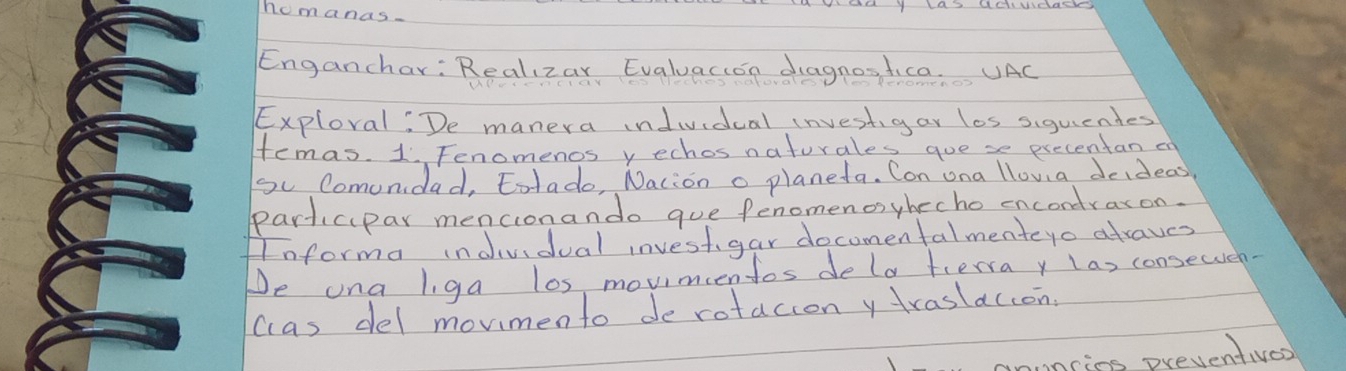 homanas.
la vida y las actividades
Enganchar: Realizar Evaluación diagnostica. UAC
los hechos naturales y los fenomenos
Exploral: De manera individual investigar los siguientes
temas. 1. Fenomenos y echos naturales que se precentan en
su Comunidad, Estado, Nación o planeta. Con una lluvia deideas,
participar mencionando que fenomenosyhecho encondraron.
Informa individual investigar documentalmenteyo atraves
De una liga los movimientos de la tierra y las consecuen-
cias del movimento de rotacion y traslación.
anuncios preventivos